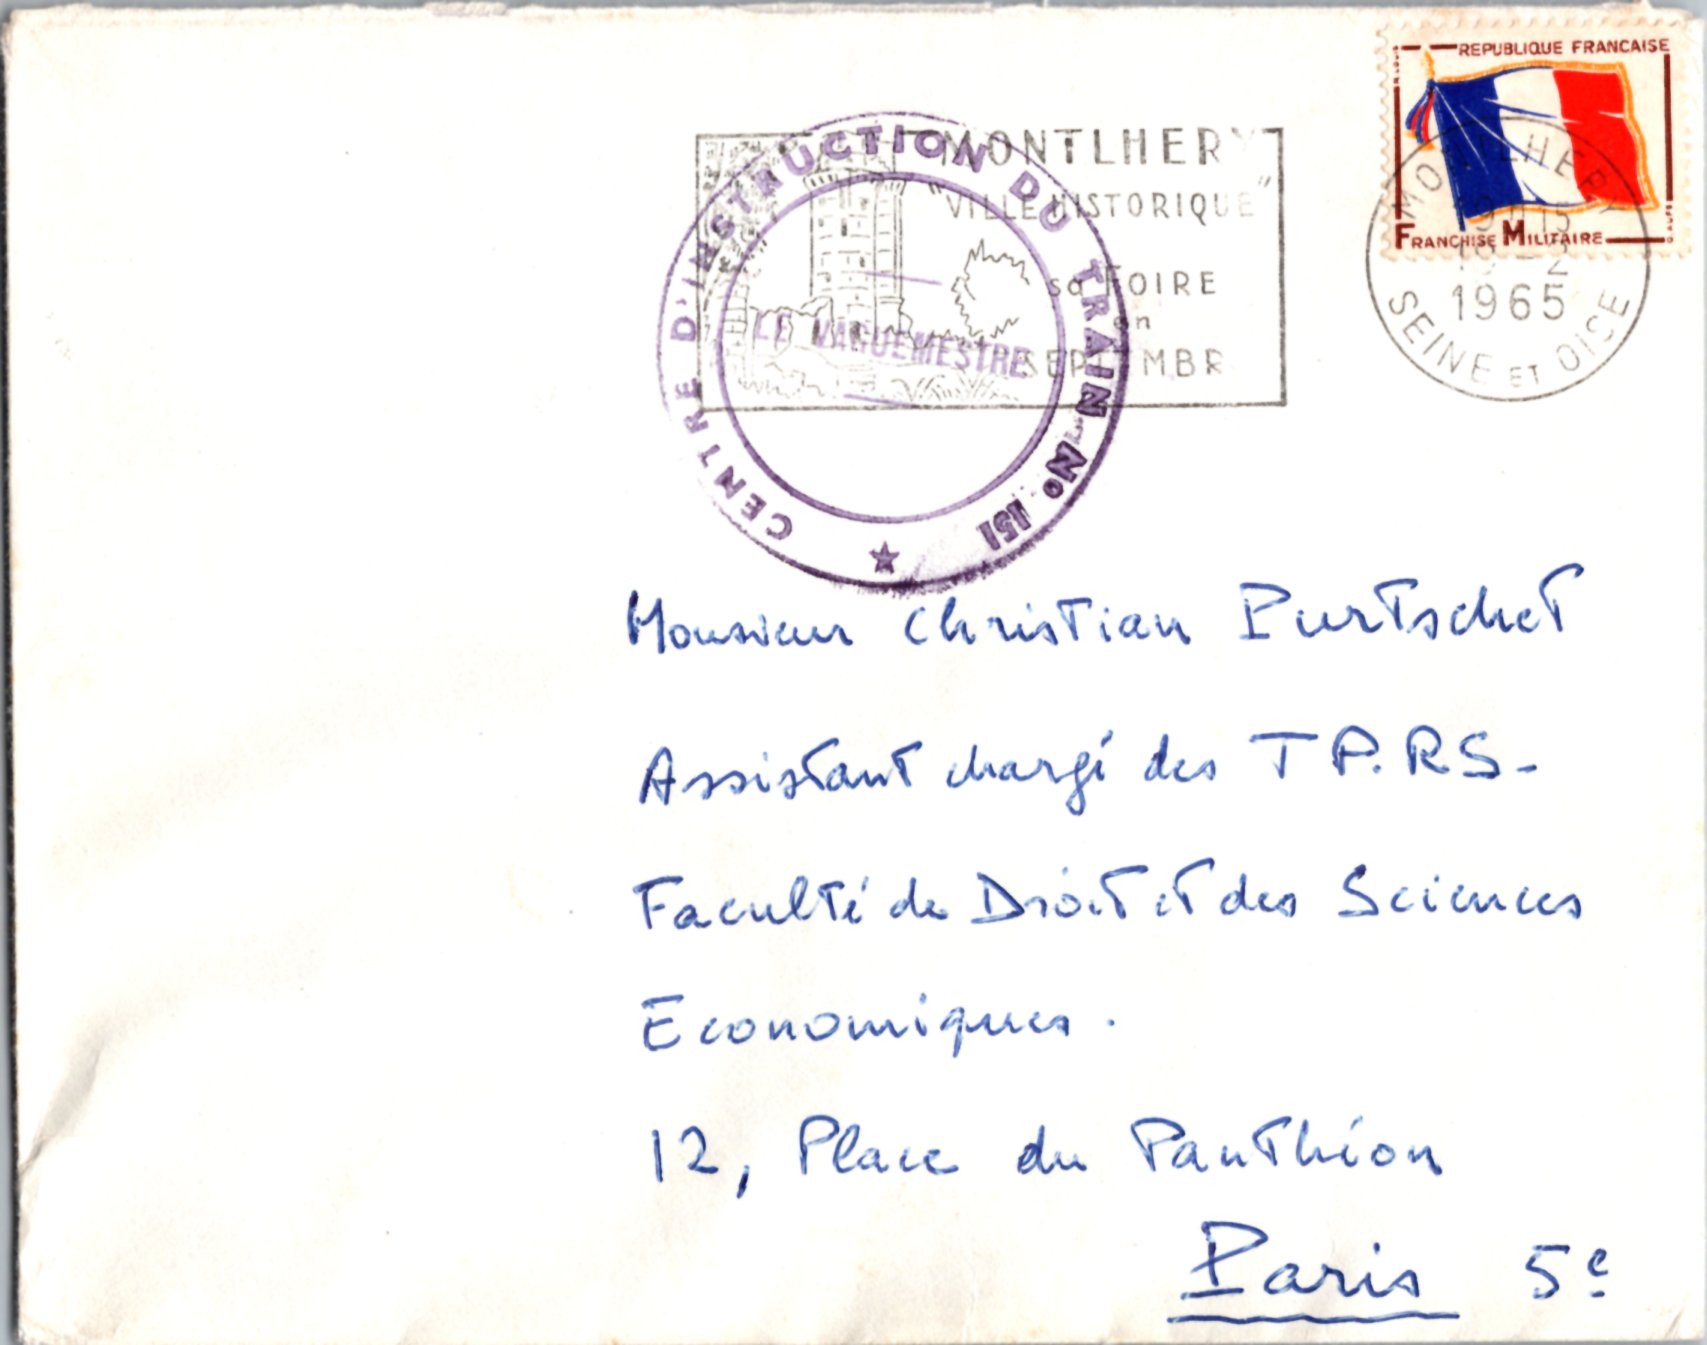 REPUBLIQUE FRANCAISE
FRANCHISE MILITAIRE
MONTLHERY
1965
SEINE ET OISE
MONTLHERY
"VILLE HISTORIQUE"
sa FOIRE
en
SEPTEMBR
CENTRE D'INSTRUCTION DU TRAIN No 151
LE VAGUEMESTRE
Monsieur Christian Purtschet
Assistant chargé des T P.R.S-
Faculté de Droit et des Sciences
Economiques.
12, Place du Panthéon
Paris 5e